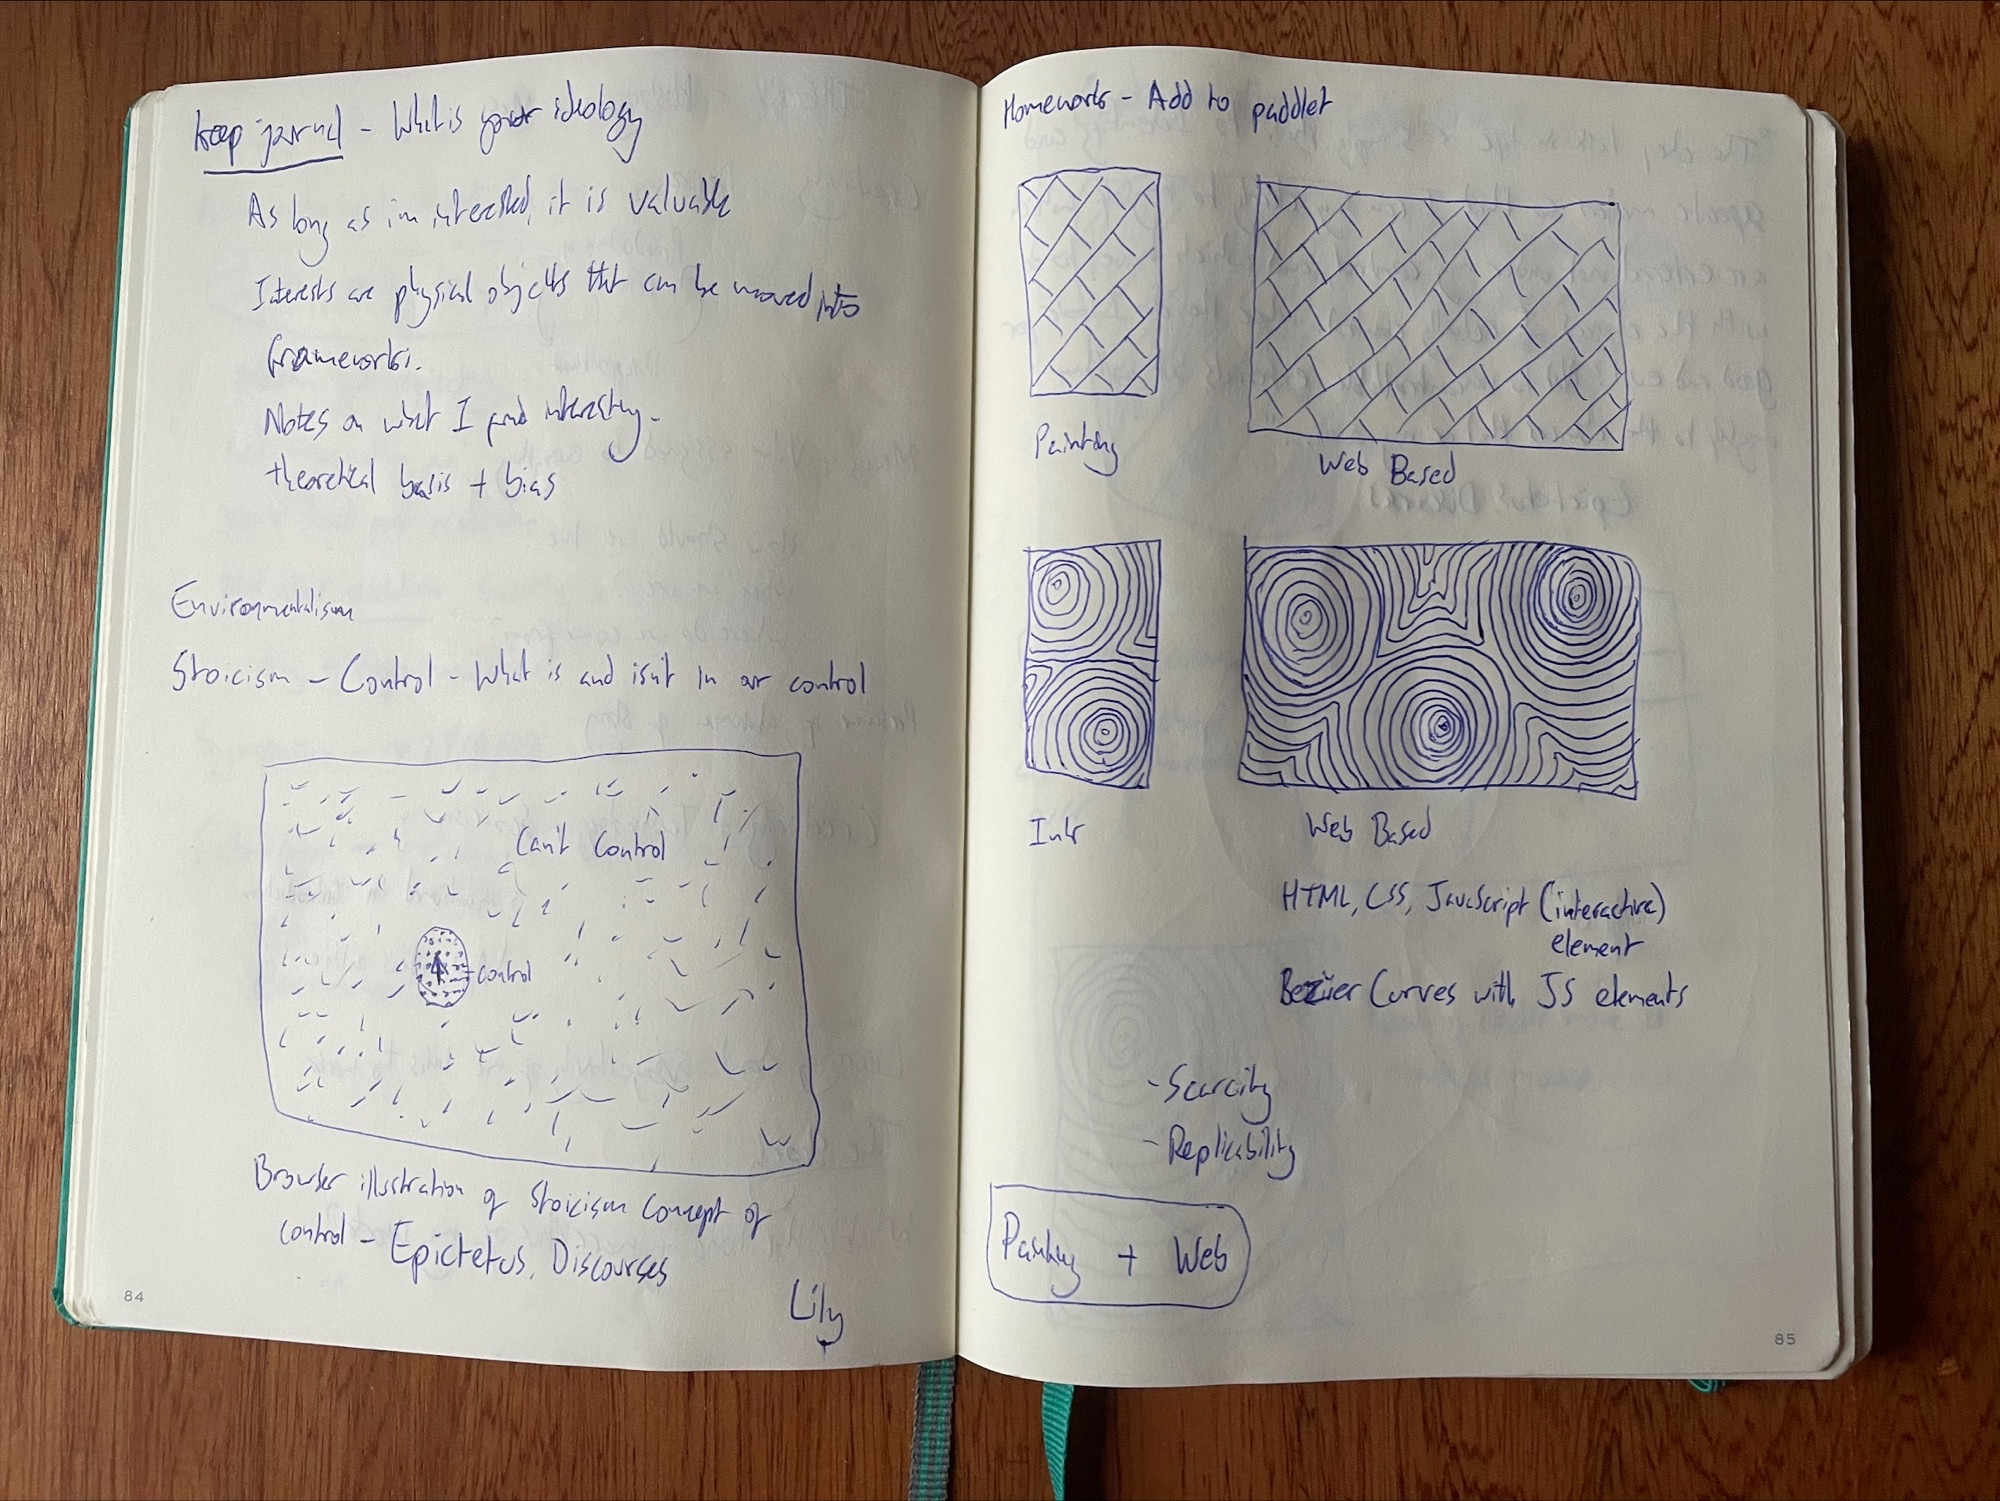 keep journal - What is your ideology
As long as im interested, it is valuable
Interests are physical objects that can be moved into
frameworks.
Notes on what I find interesting.
theoretical basis + bias
Environmentalism
Stoicism - Control - What is and isn't in our control
Can't Control
control
Browser illustration of Stoicism Concept of
control - Epictetus, Discourses
Lily
84
Homework - Add to paddlet
Painting
Web Based
Ink
Web Based
HTML, CSS, JavaScript (interactive)
element
Bezier Curves with JS elements
- Scarcity
- Replicability
Painting + Web
85